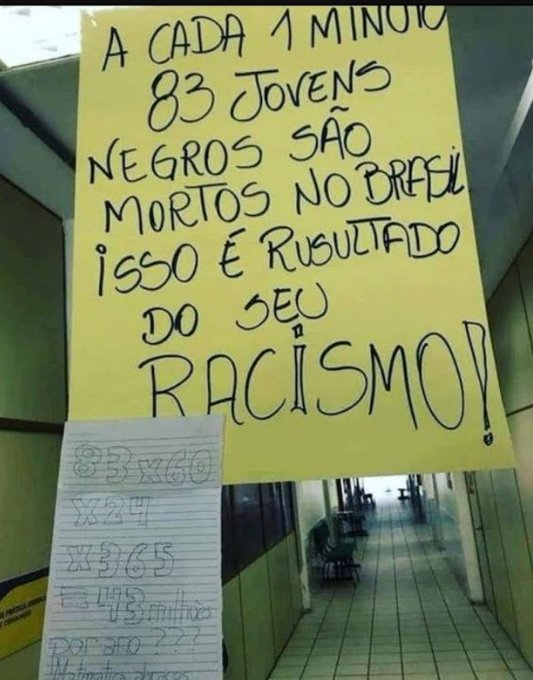 A CADA 1 MINUTO
83 JOVENS
NEGROS SÃO
MORTOS NO BRASIL
ISSO É RUSULTADO
DO SEU
RACISMO!
83x60
x24
x365
=43 milhões
por ano ???
Matematica